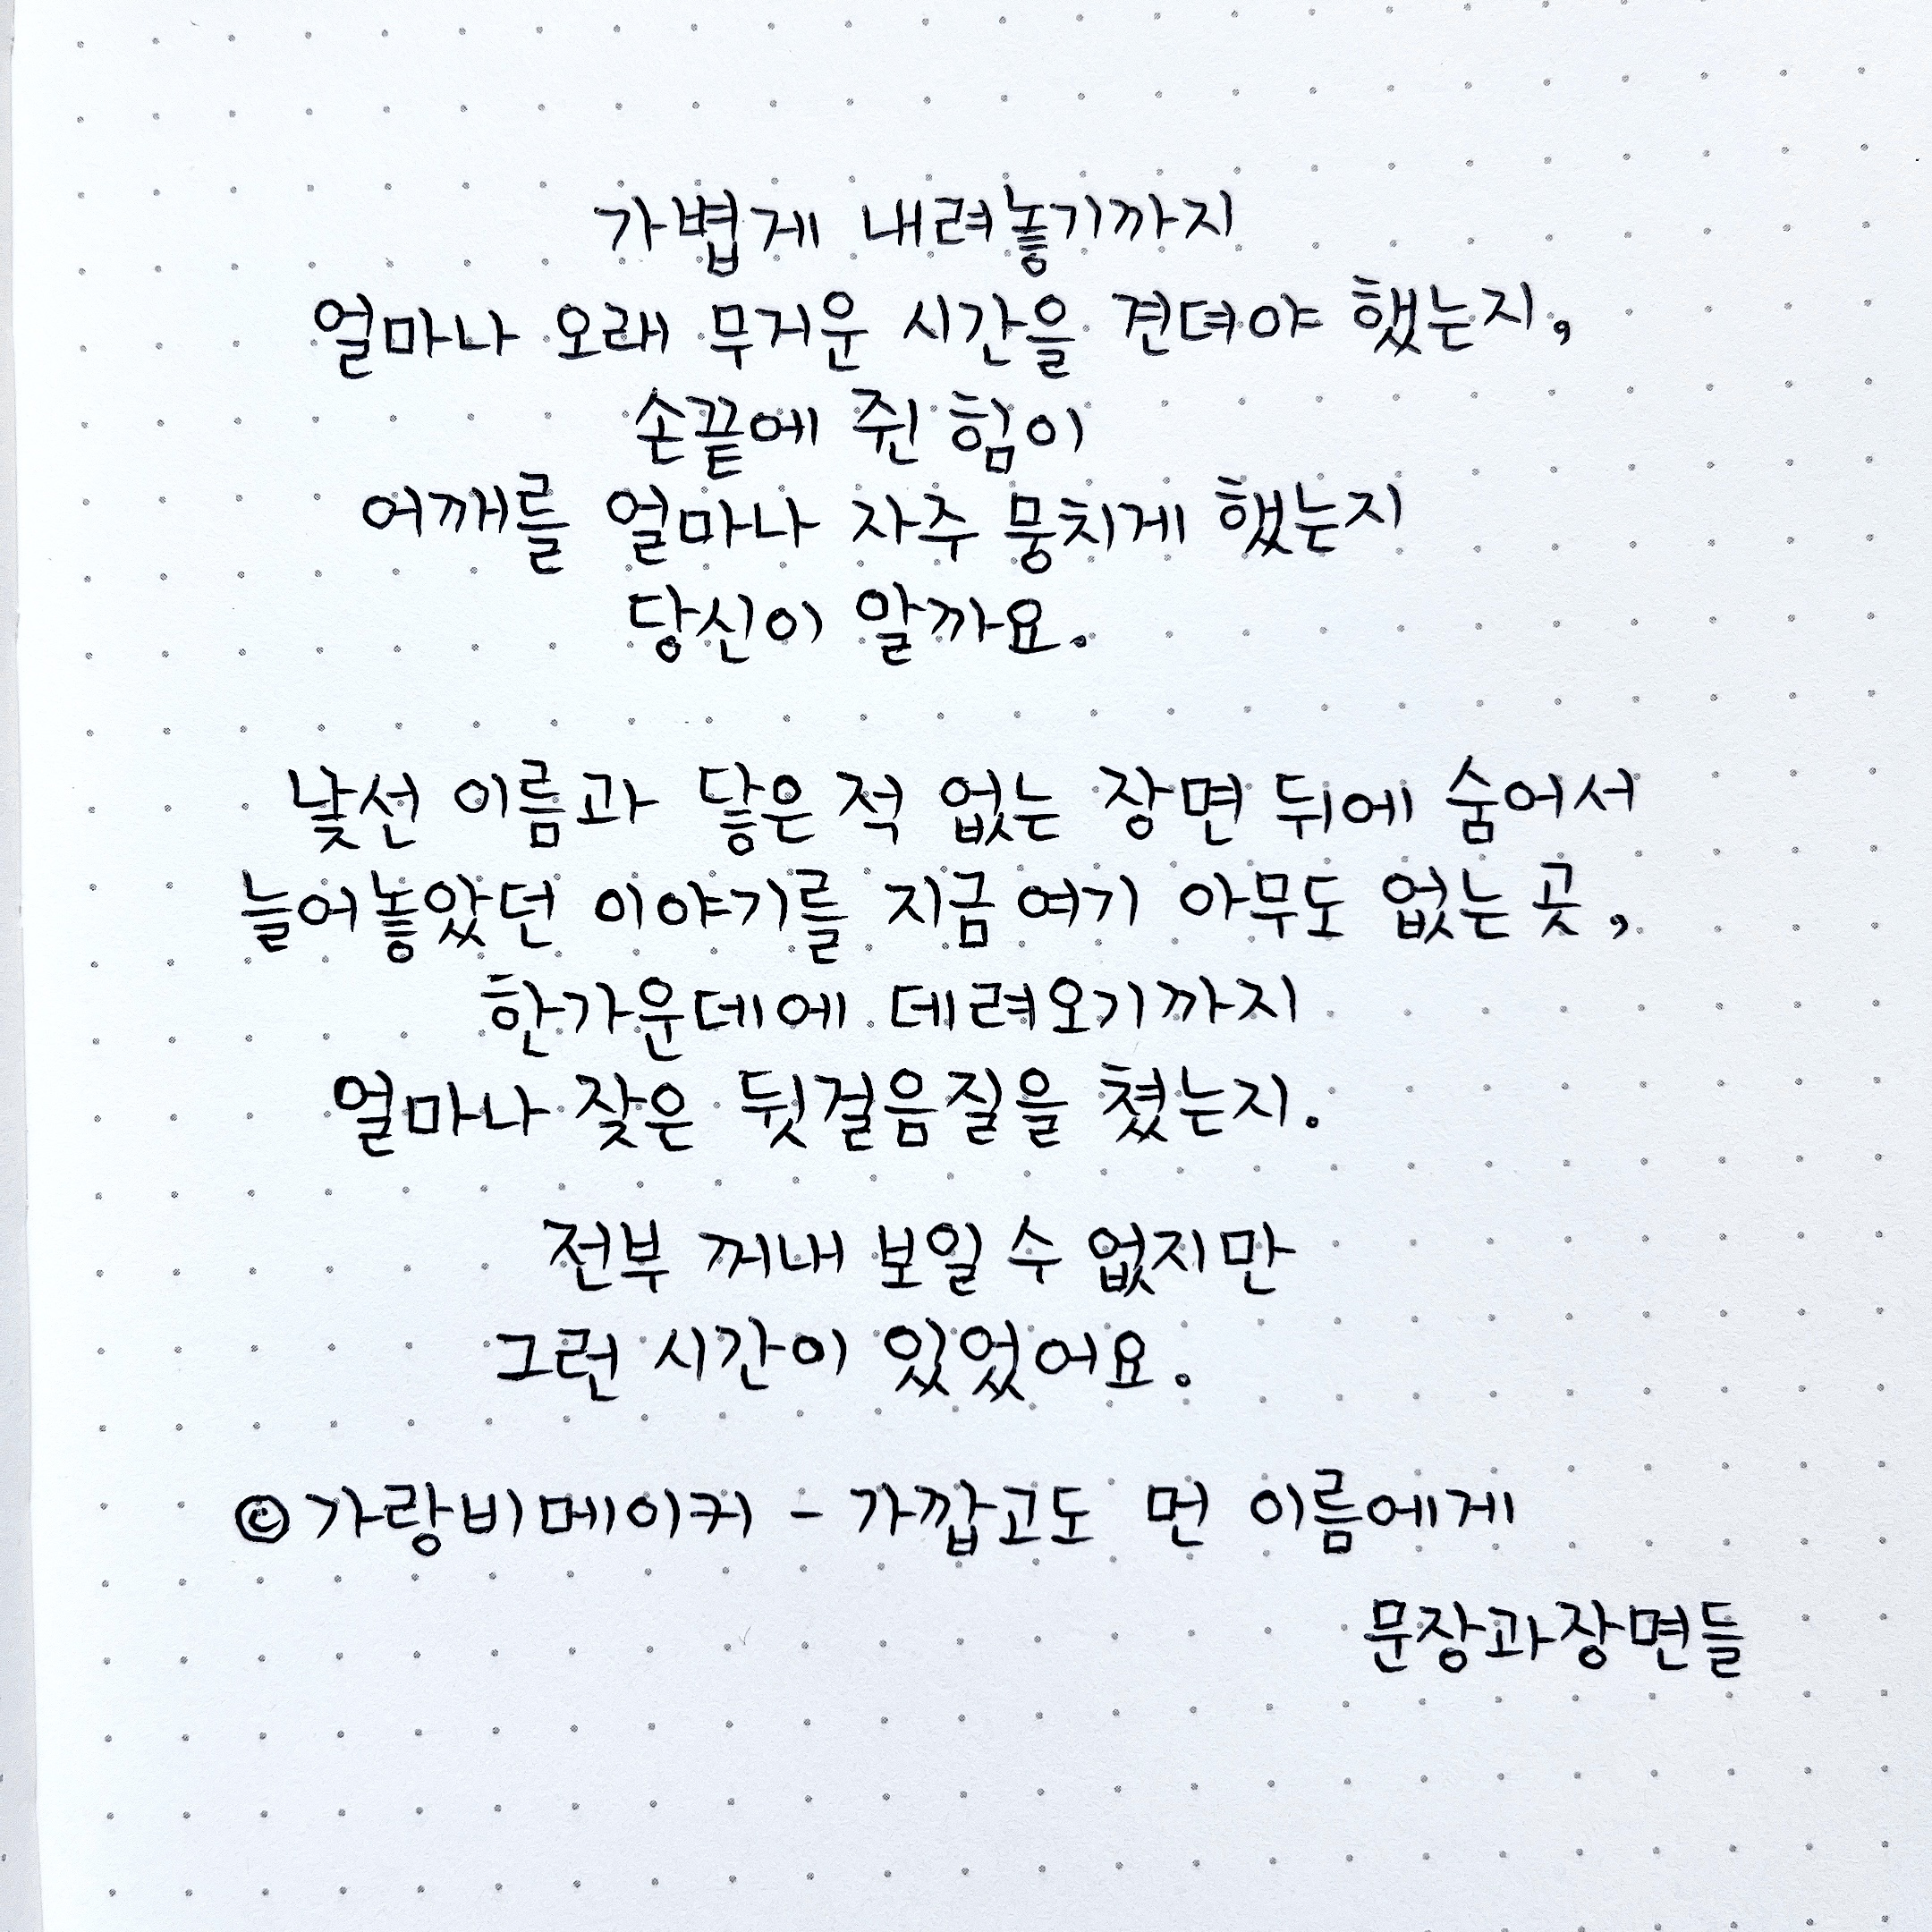 가볍게 내려놓기까지
얼마나 오래 무거운 시간을 견뎌야 했는지,
손끝에 쥔 힘이
어깨를 얼마나 자주 뭉치게 했는지
당신이 알까요.
낯선 이름과 닿은 적 없는 장면 뒤에 숨어서
늘어놓았던 이야기를 지금 여기 아무도 없는 곳,
한가운데에 데려오기까지
얼마나 잦은 뒷걸음질을 쳤는지.
전부 꺼내 보일 수 없지만
그런 시간이 있었어요.
©가랑비메이커 - 가깝고도 먼 이름에게
문장과장면들